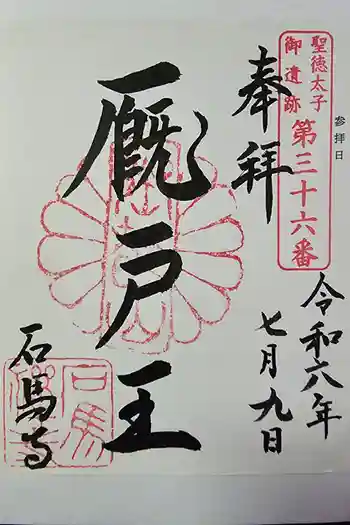 聖徳太子
御遺跡
第三十六番
参拝日
奉拝
令和六年
七月九日
厩戸王
石馬寺